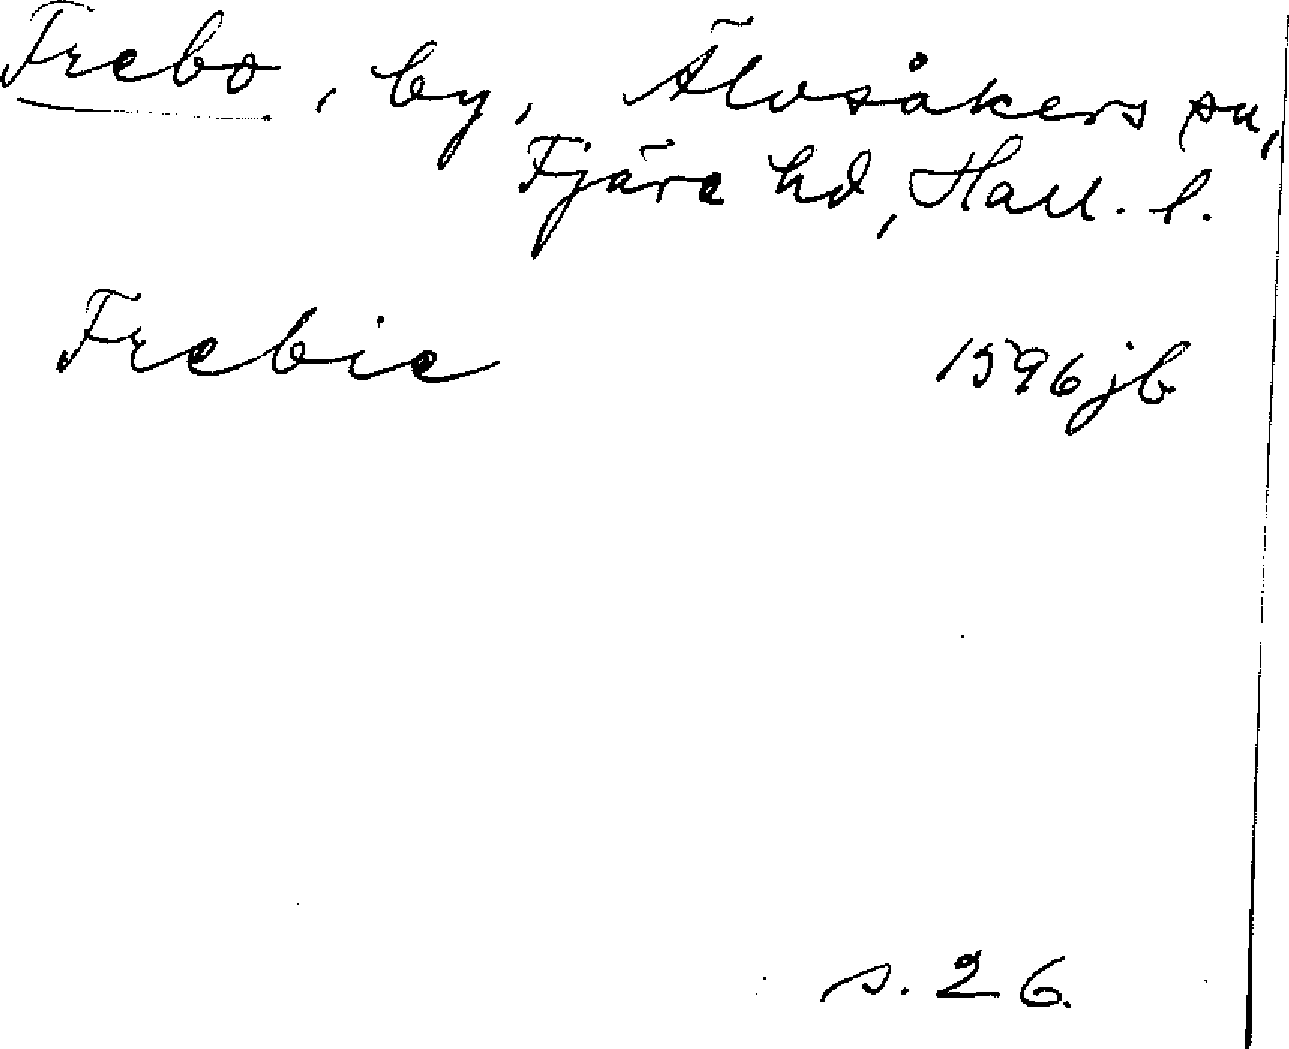 Frebo, by, Älvsåkers sn,
Fjäre hd, Hall. l.
Frebie 1596 jb
s. 26.